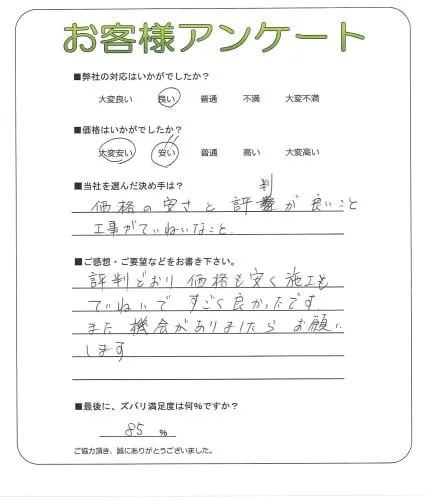 お客様アンケート
■弊社の対応はいかがでしたか?
大変良い 良い 普通 不満 大変不満
■価格はいかがでしたか?
大変安い 安い 普通 高い 大変高い
■当社を選んだ決め手は?
価格の安さと評判が良いこと
工事がていねいなこと.
■ご感想・ご要望などをお書き下さい。
評判どおり価格も安く施工も
ていねいですごく良かったです
また機会がありましたらお願い
します
■最後に、ズバリ満足度は何%ですか?
85 %
ご協力頂き、誠にありがとうございました。